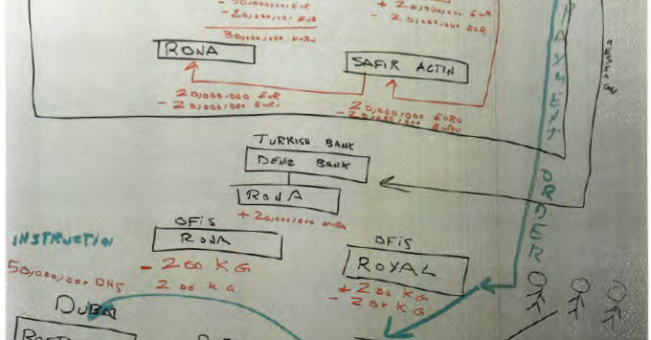 - 20,000,000 EUR
- 20,000,000 EURO
30,000,000 EURO
+ 20,000,000 EUR
- 20,000,000 EUR
RONA
SAFIR ALTIN
20,000,000 EUR
- 20,000,000 EURO
20,000,000 EURO
- 20,000,000 EURO
PAYMENT ORDER
TURKISH BANK
DENIZ BANK
RONA
+ 20,000,000 EURO
OFiS
RONA
- 200 KG
200 KG
OFiS
ROYAL
+ 200 KG
- 200 KG
INSTRUCTION
50,000,000 DHS
DUBAI